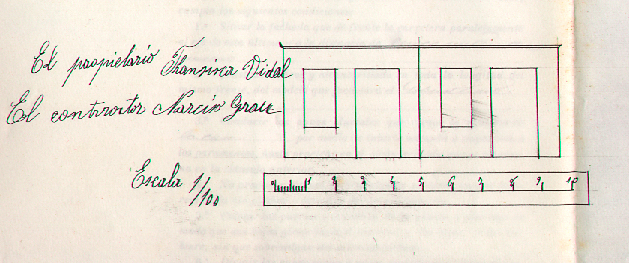 El propietario Fransisca Vidal
El contractor Narcís Grau
Escala 1/100
0 1 2 3 4 5 6 7 8 9 10